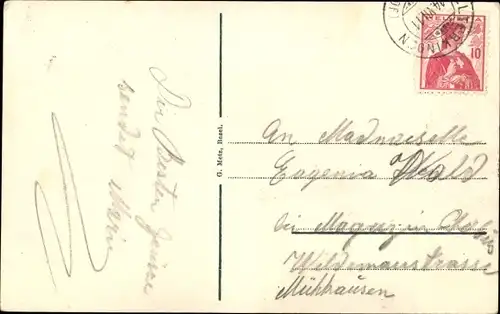 Die Besten Grüsse
sendet Marie
G. Metz, Basel.
HELVETIA
10
An Madmoiselle
Eugenia Wald
bei Magazin
Wildemannstrasse
Mühlhausen